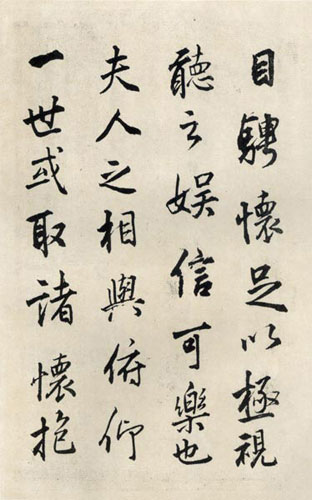 目騁懷足以極視
聽之娱信可樂也
夫人之相與俯仰
一世或取諸懷抱